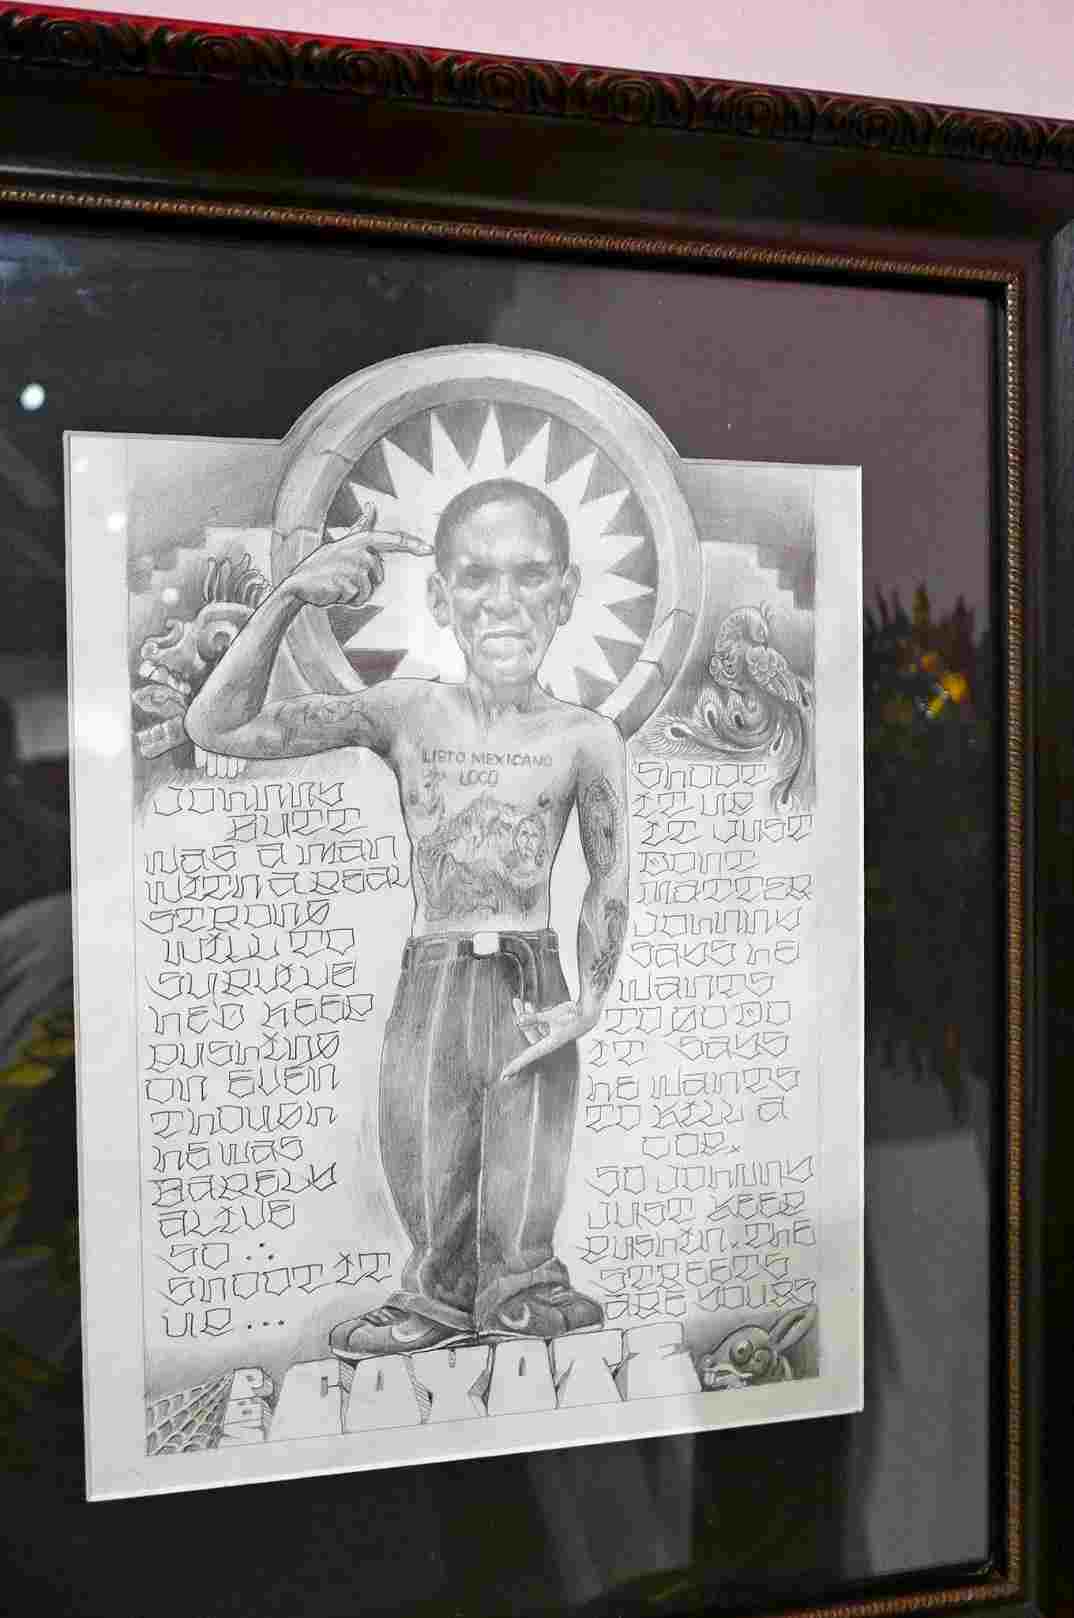 LISTO MEXICANO
LOCO
JOHNNY
BUTT
WAS A MAN
WITH A REAL
STRONG
WILL TO
SURVIVE
HED KEEP
PUSHING
ON EVEN
THOUGH
HE WAS
BARELY
ALIVE
SO ...
SHOOT IT
UP ...
SHOOT
IT UP
IT JUST
DONT
MATTER
JOHNNY
SAYS HE
WANTS
TO GO DO
IT SAYS
HE WANTS
TO KILL A
COP.
SO JOHNNY
JUST KEEP
PUSHIN. THE
STREETS
ARE YOURS
COYOTE